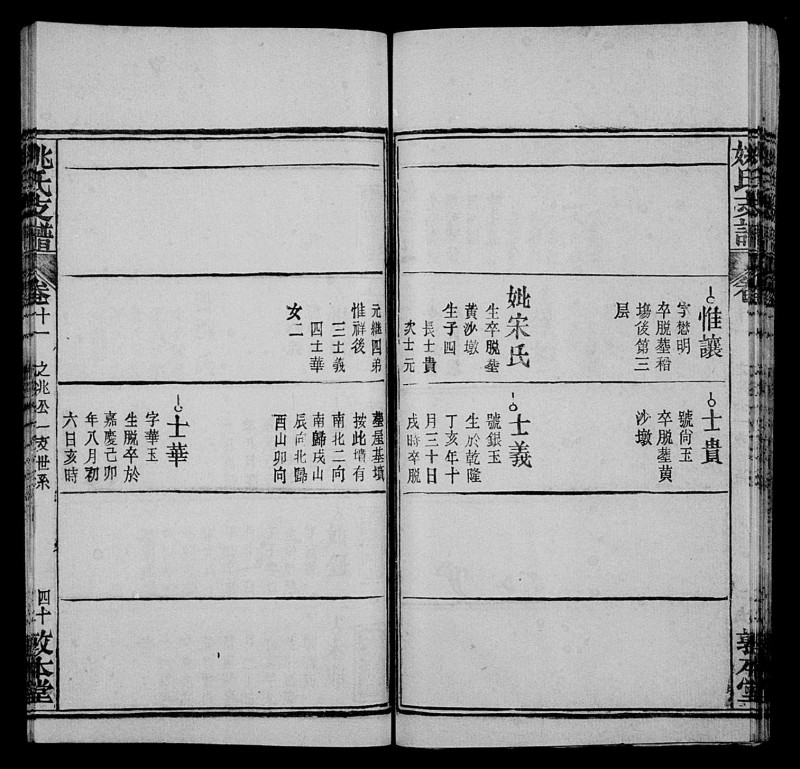 姚氏支譜
惟讓
字懋明
卒脫塟稻
塲後第三
层
妣宋氏
生卒脫塟
黃沙墩
生子四
長士貴
次士元
士貴
號尙玉
卒脫塟黃
沙墩
士義
號銀玉
生於乾隆
丁亥年十
月三十日
戌時卒脫
敦本堂
元繼四弟
惟祥後
三士義
四士華
女二
塟屋基墳
按此墳有
南北二向
南歸戌山
辰向北歸
酉山卯向
士華
字華玉
生脫卒於
嘉慶己卯
年八月初
六日亥時
姚氏支譜
卷十一
之兆公一支世系
四十
敦本堂